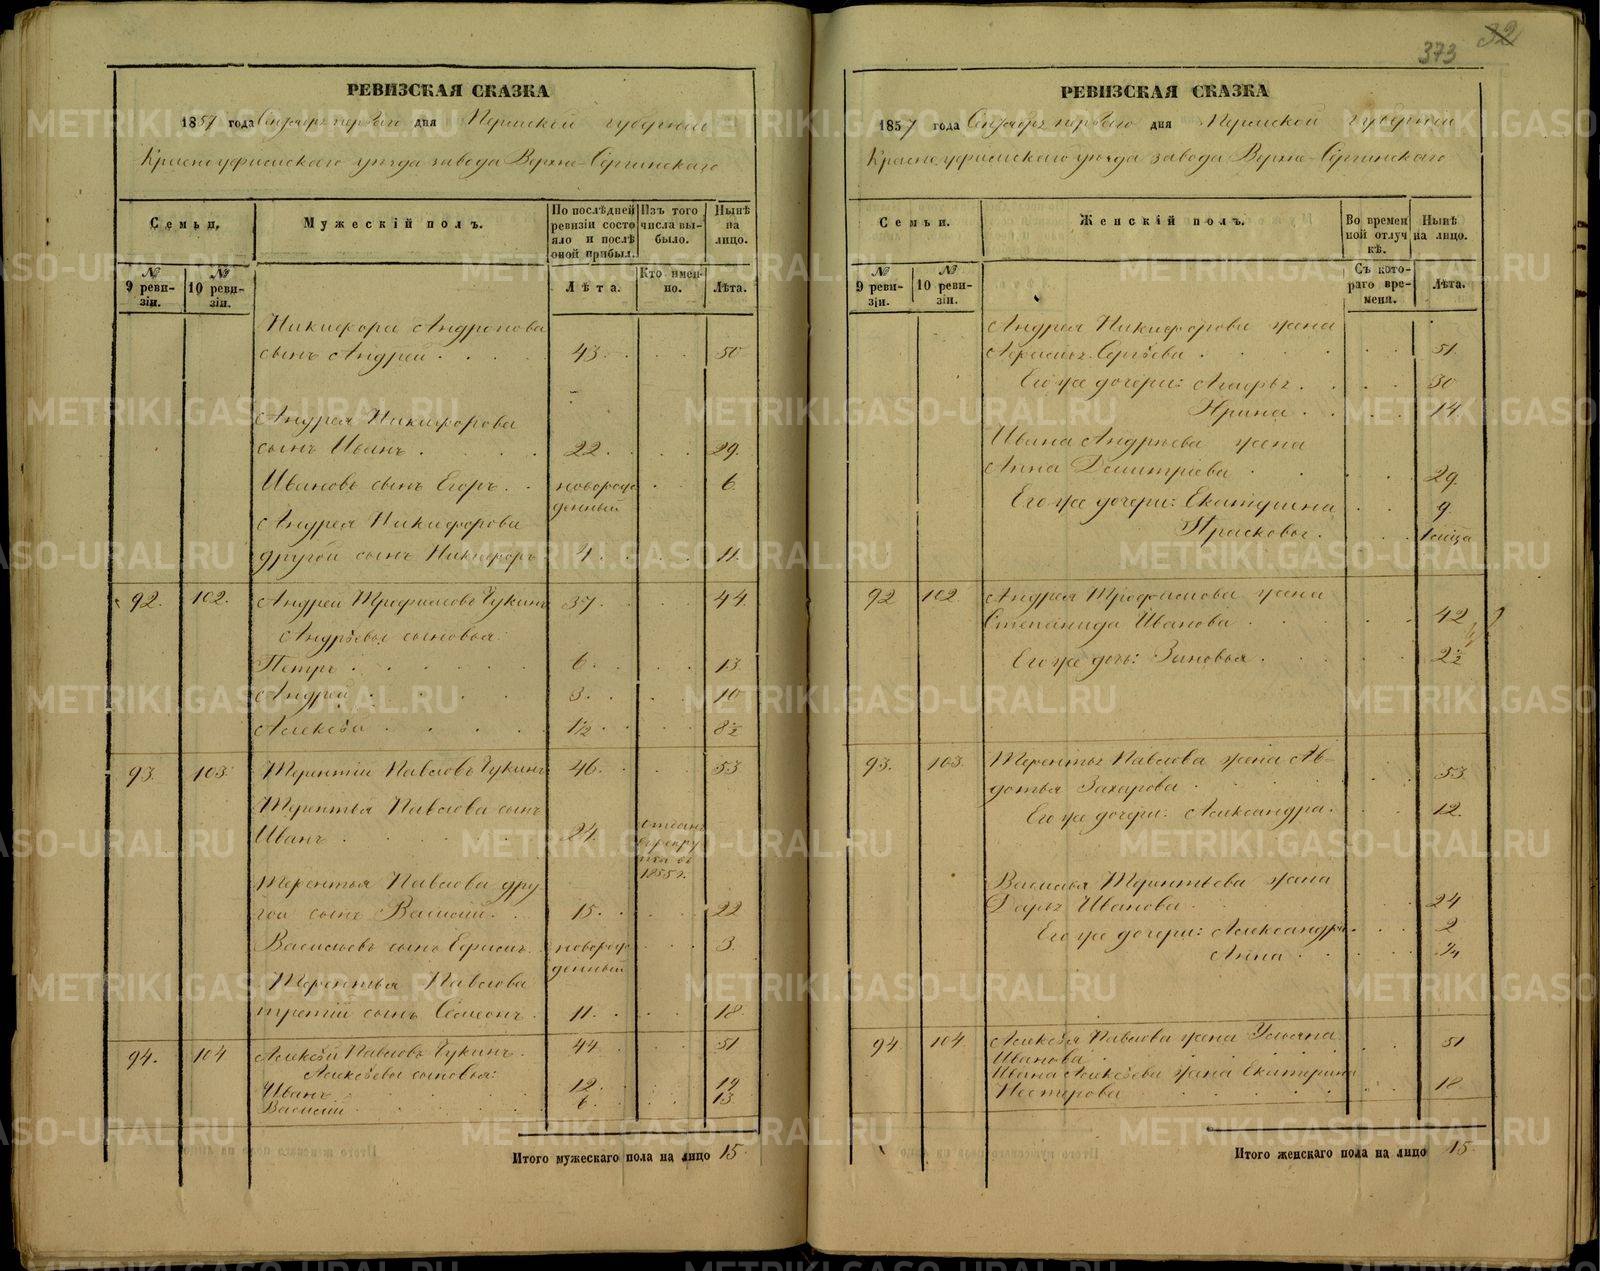 373
32
РЕВИЗСКАЯ СКАЗКА
1857 года Сентября первого дня Пермской губернии
Красноуфимскаго уезда завода Верхне-Сергинскаго
Семьи.
Мужескій полъ.
По послѣдней ревизіи состояло и послѣ оной прибыл.
Изъ того числа выбыло.
Нынѣ на лицо.
№ 9 ревизіи.
№ 10 ревизіи.
Лѣта.
Кто именно.
Лѣта.
Никифора Андронова
сынъ Андрей 43 50
Андрея Никифорова
сынъ Иванъ 22 29
Ивановъ сынъ Егоръ новорож- 6
денный
Андрея Никифорова
другой сынъ Никифоръ 4 11
92. 102. Андрей Трофимовъ Чукинъ 37 44
Андрѣевы сыновья:
Петръ 6 13
Андрей 3 10
Алексѣй 1½ 8½
93. 103 Терентій Павловъ Чукинъ 46 53
Терентья Павлова сынъ
Иванъ 24 отданъ
в рекру-
ты въ
1855 г.
Терентья Павлова дру
гой сынъ Василій 15 22
Васильевъ сынъ новорож 3
денный
Терентья Павлова
третій сынъ Семенъ 11 18
94. 104 Алексѣй Павловъ Чукинъ 44 51
Алексѣевы сыновья:
Иванъ 12 19
Василій 6 13
Итого мужескаго пола на лицо 15
РЕВИЗСКАЯ СКАЗКА
1857 года Сентября первого дня Пермской губерніи
Красноуфимскаго уезда завода Верхне-Сергинскаго
Семьи.
Женскій полъ.
Во временной отлучкѣ.
Нынѣ на лицо.
№ 9 ревизіи.
№ 10 ревизіи.
Съ котораго времени.
Лѣта.
Андрея Никифорова жена
Сергѣева 51
Его же дочери: Агафья 30
Ирина 14
Ивана Андрѣева жена
Анна Дмитріева 29
Его же дочери: Екатерина 9
Прасковья
92 102 Андрея Трофимова жена
Степанида Иванова 42
Его же дочь: Зиновья 2½
93. 103 Терентья Павлова жена Ав-
дотья Захарова 53
Его же дочери: Александра 12
Василья Терентьева жена
Дарья Иванова 24
Его же дочери: Александра 2
Анна ¾
94 104 Алексѣя Павлова жена Ульяна
Иванова 51
Ивана Алексѣева жена Екатерина
Нестерова 18
Итого женскаго пола на лицо 15
METRIKI.GASO-URAL.RU